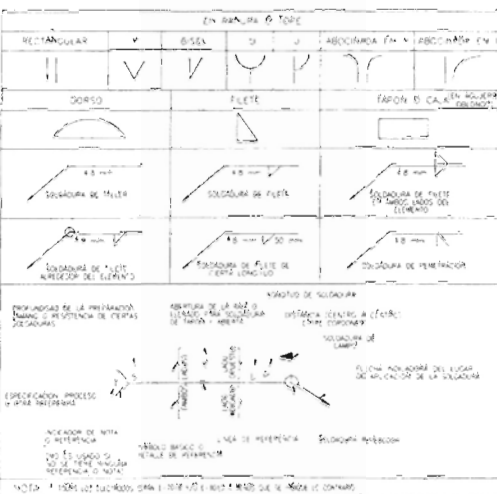 EN RANURA O TOPE
RECTANGULAR V BISEL U J ABOCINADA EN V ABOCINADA EN
DORSO FILETE TAPON O CALA (EN AGUJERO OBLONGO)
4.8 mm
SOLDADURA DE TALLER
4.8 mm
SOLDADURA DE FILETE
4.8 mm
SOLDADURA DE FILETE
EN AMBOS LADOS DEL
ELEMENTO
mm
SOLDADURA DE FILETE
ALREDEDOR DEL ELEMENTO
4.8 mm 50 mm
SOLDADURA DE FILETE DE
CIERTA LONGITUD
4.8 mm
SOLDADURA DE PENETRACION
LONGITUD DE SOLDADURA
PROFUNDIDAD DE LA PREPARACION
TAMANO O RESISTENCIA DE CIERTAS
SOLDADURAS
ABERTURA DE LA RAIZ O
LLENADO PARA SOLDADURA
DE TAPON Y ABIERTA
DISTANCIA (CENTRO A CENTRO)
ENTRE CORDONES
SOLDADURA DE
CAMPO
FLECHA INDICADORA DEL LUGAR
DE APLICACION DE LA SOLDADURA
AMBOS LADOS
LADO OPUESTO
LADO CERCANO
ESPECIFICACION PROCESO
U OTRA REFERENCIA
INDICADOR DE NOTA
O REFERENCIA
(NO ES USADO SI
NO SE TIENE NINGUNA
REFERENCIA O NOTA)
SIMBOLO BASICO O
DETALLE DE REFERENCIA
LINEA DE REFERENCIA
SOLDADURA ALREDEDOR
NOTA: TODOS LOS ELECTRODOS SERAN E-70XX A MENOS QUE SE INDIQUE LO CONTRARIO